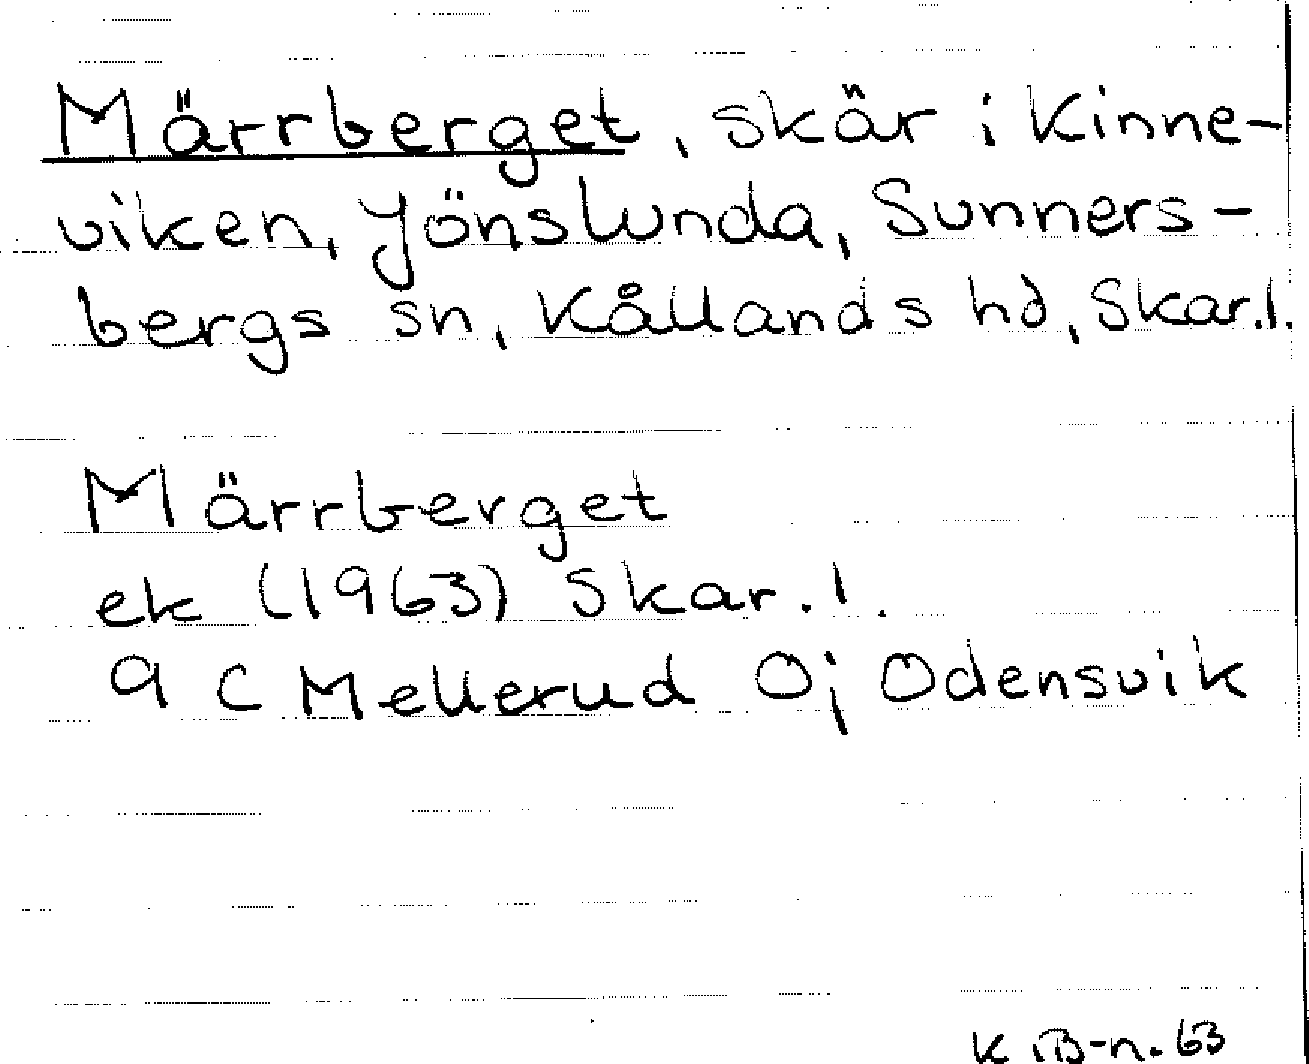 Märrberget, skär i Kinne-
viken, Jönslunda, Sunners-
bergs sn, Kållands hd, Skar.l.
Märrberget
ek (1963) Skar.l.
9 C Mellerud Oj Odensvik
K.B-n. 63